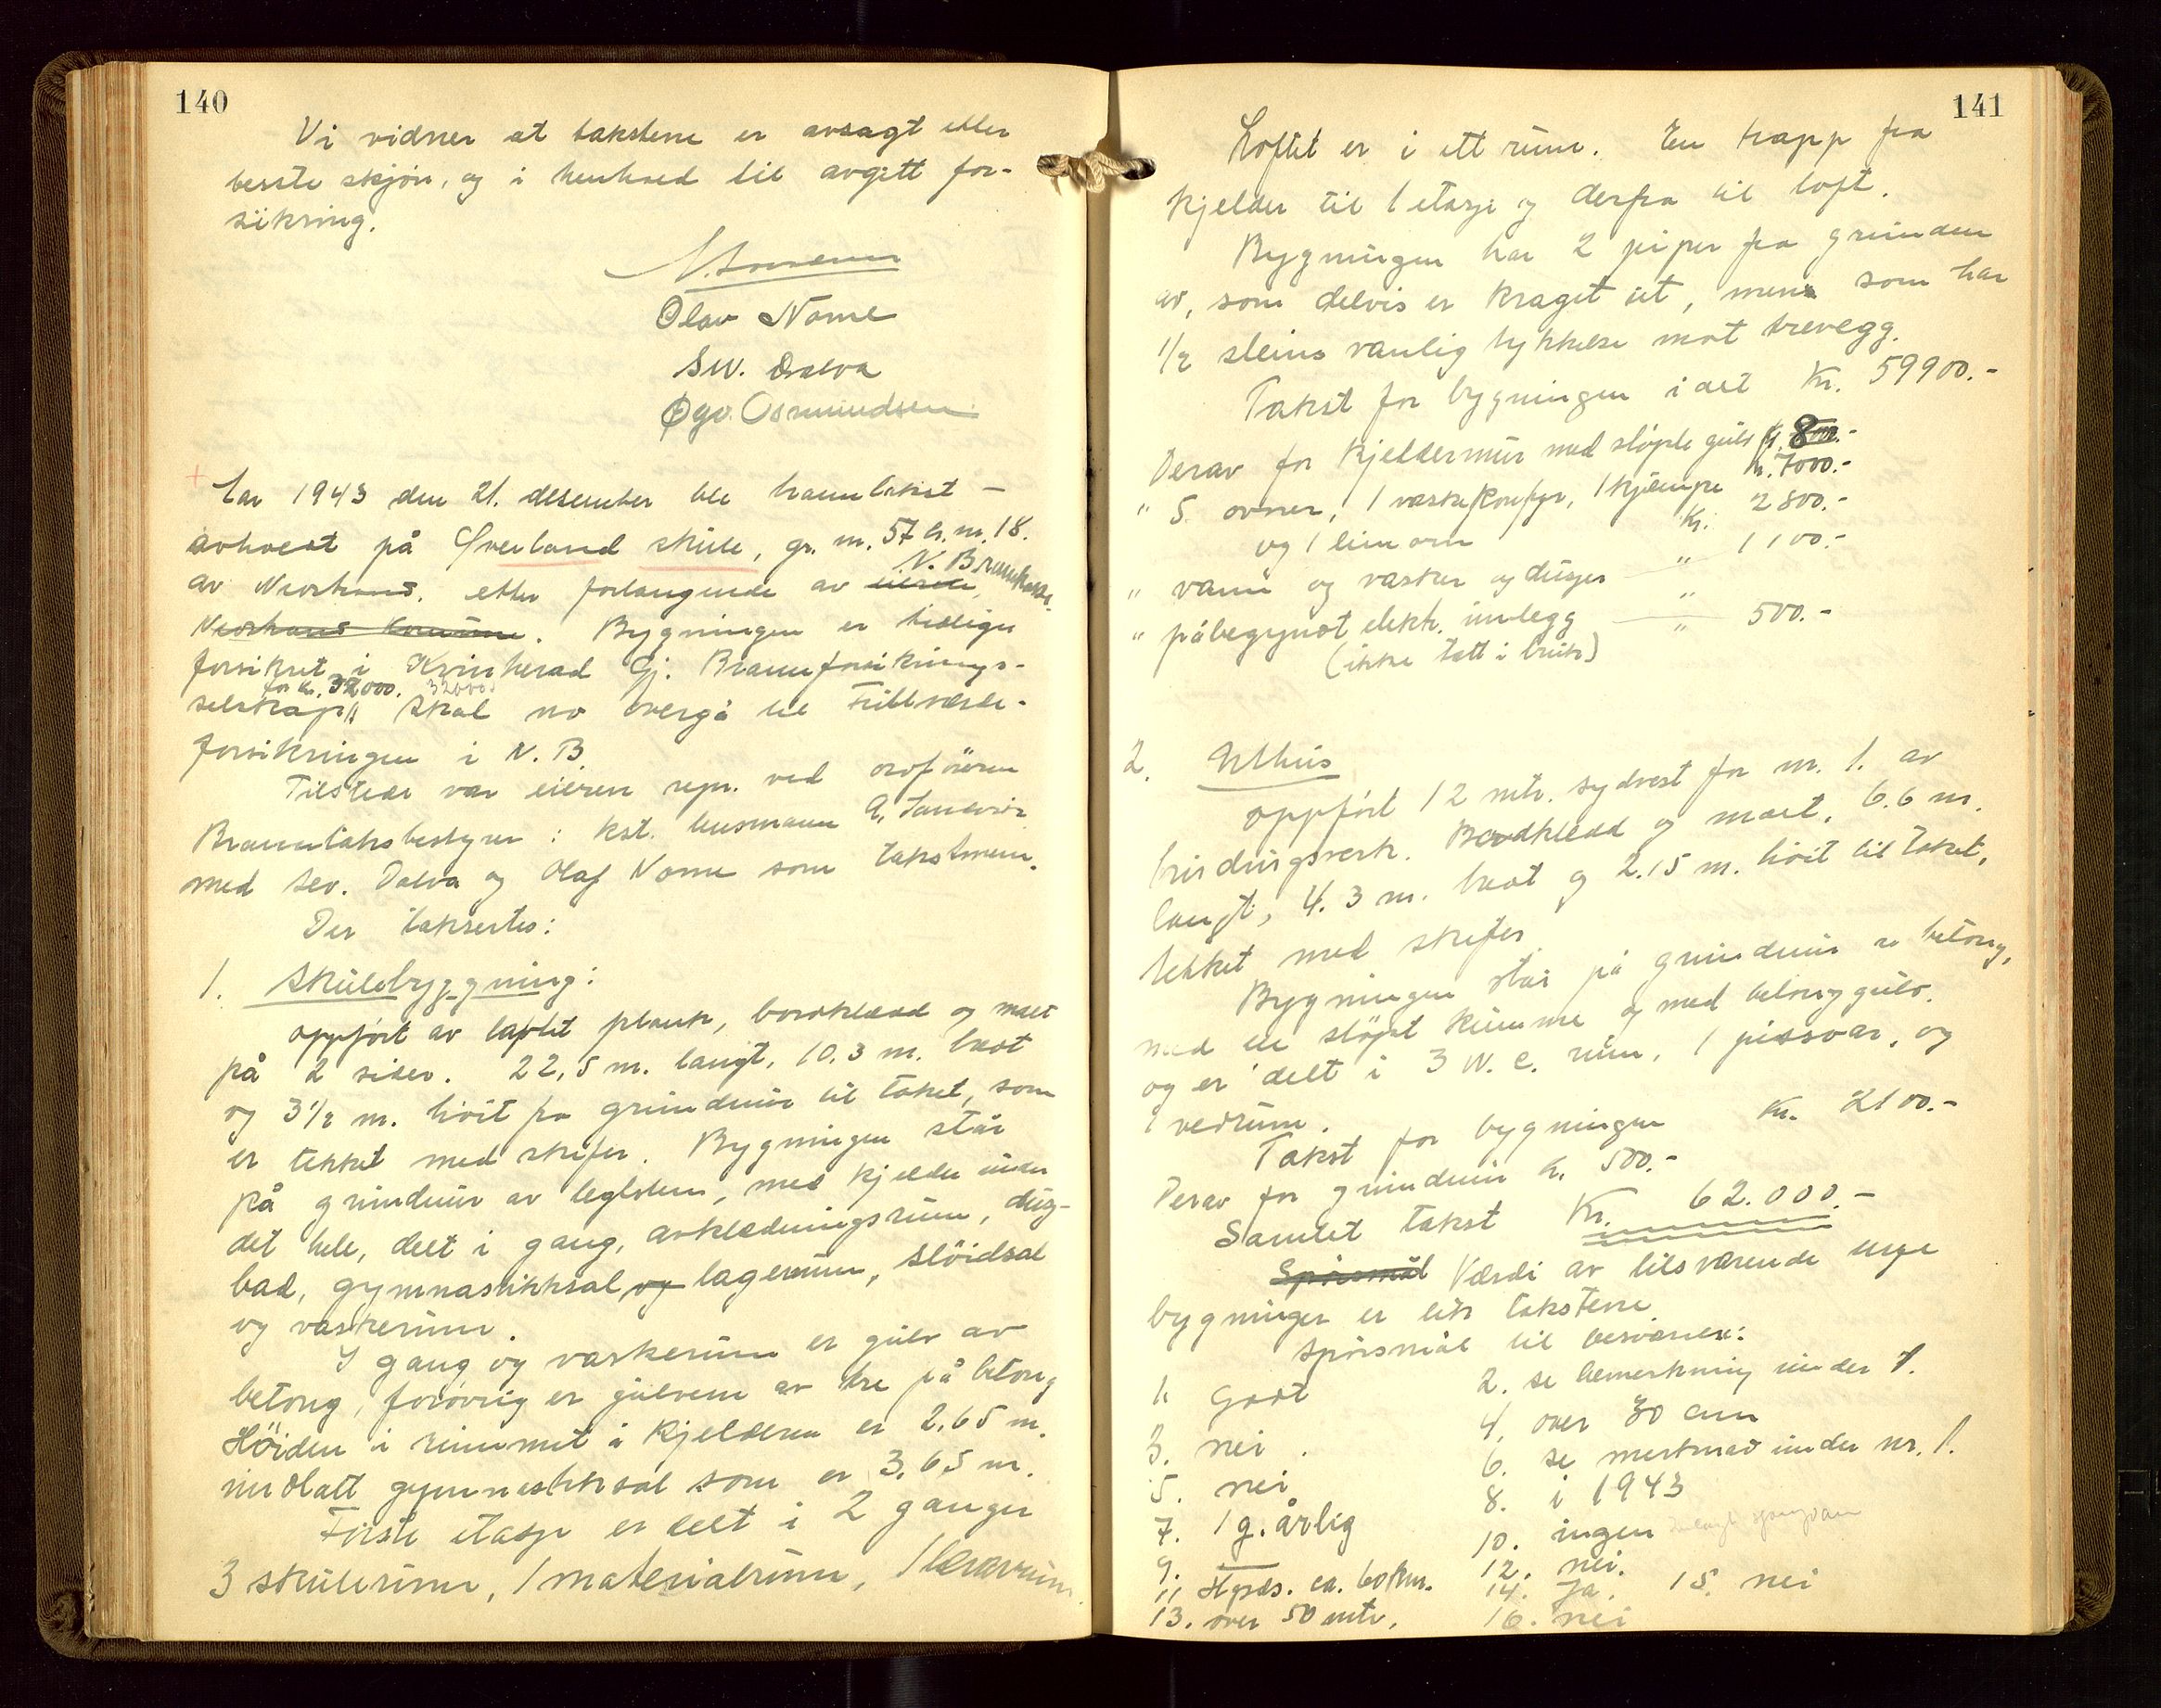 140
Vi vidner at takstene er avsagt etter
beste skjøn, og i henhold til avgitt for-
sikring.
Olav Nome
Sev. Dalva
Øyv. Osmundsen
Aar 1943 den 21. desember ble branntakst
avholdt på Øverland skule, gr. nr. 57 b. nr. 18.
N. Brannkasse
av Nedstrand, etter forlangende av eierne,
Nedstrand Komune. Bygningen er tidligere
forsikret i Kvinherad Gj. Brannforsikrings-
for kr. 32000. 32000
selskap. Skal no overgå til Fullverdi-
forsikringen i N. B.
Tilstede var eieren repr. ved ordføreren
Branntakstbestyrer: kst. lensmann A. Sandvik
med Sev. Dalva og Olaf Nome som takstmenn.
Der taksertes:
1. Skulebyggning:
oppført av laftet plank, bordkledd og malt
på 2 sider. 22,5 m. langt, 10.3 m. bredt
og 3 1/2 m. höit fra grundmur til taket, som
er tekket med skifer. Bygningen står
på grundmur av teglsten, med kjelder under
det hele, delt i gang, avkledningsrum, dusj-
bad, gymnastikksal og lagerrum, slöidsal
og vaskerum.
I gang og vaskerum er gulv av
betong, forøvrig er gulvene av tre på betong
Höiden i rummet i kjelderen er 2,65 m.
undtatt gymnastikksal som er 3,65 m.
Første etasje er delt i 2 ganger
3 skulerum, 1 materialrum, 1 lærarrum.
141
Loftet er i ett rum. En trapp fra
kjelder til 1 etasje og derfra til loft.
Bygningen har 2 piper fra grunden
av, som delvis er kraget ut, men som har
1/2 steins vanlig tykkelse mot trevegg.
Takst for bygningen i alt Kr. 59900.-
Derav for kjeldermur med støpte gulv kr. 8
kr. 7000.-
" 5 ovner, 1 vaskekomfyr, 1 kjempe
og 1 limovn Kr. 2800.-
" vann og vasker og dusjer " 1100.-
" påbegyndt elektr. innlegg " 500.-
(ikke tatt i bruk)
2. Uthus
oppført 12 mtr. sydvest for nr. 1. av
bindingsverk. Bordkledd og malt, 6.6 m.
langt, 4.3 m. bredt og 2.15 m. höit til taket,
tekket med skifer.
Bygningen står på grundmur av betong,
med en støpt kumme og med betonggulv.
og er delt i 3 W.C. rum, 1 pissoar, og
1 vedrum.
Takst for bygningen Kr. 2100.-
Derav for grundmur kr. 500.-
Samlet takst Kr. 62.000.-
Spörsmål Verdi av tilsvarende nye
bygninger er lik takstene
Spörsmål til besvarelse:
1. Godt 2. se bemerkning under 1.
3. nei. 4. over 30 cm
5. nei 6. se merknad under nr. 1.
7. 1 g. årlig 8. i 1943
9. — 10. ingen
11. ca. 60 km. 12. nei.
13. over 50 mtr. 14. Ja. 15. nei
16. nei